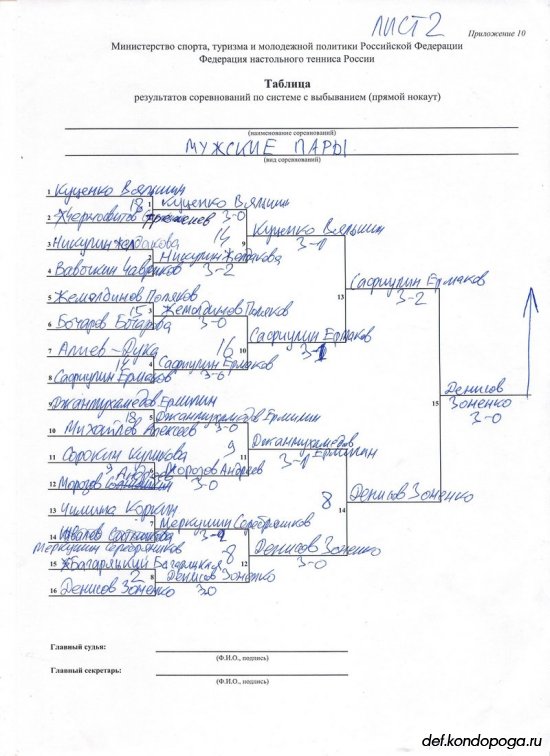 ЛИСТ 2
Приложение 10
Министерство спорта, туризма и молодежной политики Российской Федерации
Федерация настольного тенниса России
Таблица
результатов соревнований по системе с выбыванием (прямой нокаут)
(наименование соревнований)
МУЖСКИЕ ПАРЫ
(вид соревнований)
1 Куценко Вяльшин
18 1 Куценко Вяльшин
2 3-0
14 Куценко Вяльшин
3 Никулин 9 3-1
2 Никулин
4 Вавочкин Чавриков 3-2
13 Сафиулин Ермаков
3-2
5 Жемалдинов Поляков
15 3 Жемалдинов Поляков
6 Бочаров Бочарова 3-0
16 10 Сафиулин Ермаков
7 Алиев-Дука
4 Сафиулин Ермаков
8 Сафиулин Ермаков
15 Денисов
Зоненко
3-0
9 Джанмухамедов Ермилин
5 Джанмухамедов Ермилин
10 Михайлов Алексеев 3-0
9 11 Джанмухамедов
Ермилин
3-1
11 Сорокин Куликова
9 6 Морозов Андреев
12 Морозов Андреев 3-0
8 14 Денисов Зоненко
13 Чилина Коркин
7 Меркушин Серебряников
14
Меркушин Серебряников
8 12 Денисов Зоненко
3-0
15 Багаряцкий
2 8 Денисов Зоненко
16 Денисов Зоненко 3-0
Главный судья:
(Ф.И.О., подпись)
Главный секретарь:
(Ф.И.О., подпись)
def.kondopoga.ru